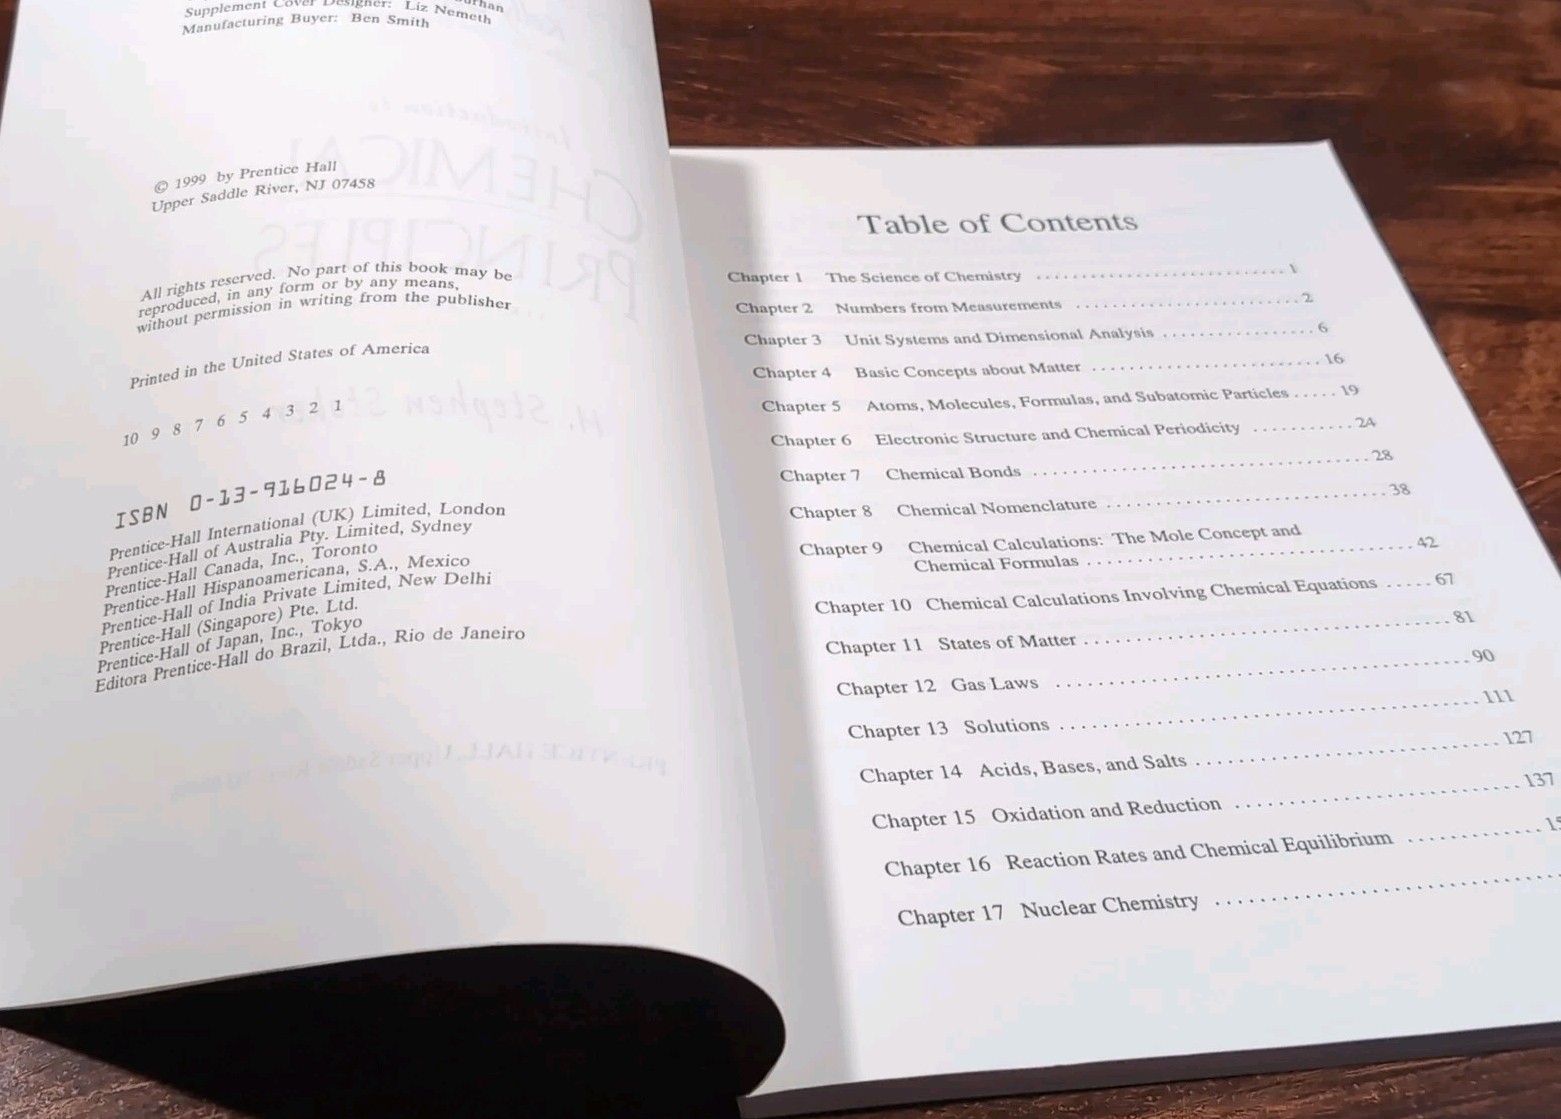 Supplement Cover Designer: Liz Nemeth
Manufacturing Buyer: Ben Smith
© 1999 by Prentice Hall
Upper Saddle River, NJ 07458
All rights reserved. No part of this book may be
reproduced, in any form or by any means,
without permission in writing from the publisher
Printed in the United States of America
10 9 8 7 6 5 4 3 2 1
ISBN 0-13-916024-8
Prentice-Hall International (UK) Limited, London
Prentice-Hall of Australia Pty. Limited, Sydney
Prentice-Hall Canada, Inc., Toronto
Prentice-Hall Hispanoamericana, S.A., Mexico
Prentice-Hall of India Private Limited, New Delhi
Prentice-Hall (Singapore) Pte. Ltd.
Prentice-Hall of Japan, Inc., Tokyo
Editora Prentice-Hall do Brazil, Ltda., Rio de Janeiro
Table of Contents
Chapter 1 The Science of Chemistry 1
Chapter 2 Numbers from Measurements 2
Chapter 3 Unit Systems and Dimensional Analysis 6
Chapter 4 Basic Concepts about Matter 16
Chapter 5 Atoms, Molecules, Formulas, and Subatomic Particles 19
Chapter 6 Electronic Structure and Chemical Periodicity 24
Chapter 7 Chemical Bonds 28
Chapter 8 Chemical Nomenclature 38
Chapter 9 Chemical Calculations: The Mole Concept and
Chemical Formulas 42
Chapter 10 Chemical Calculations Involving Chemical Equations 67
Chapter 11 States of Matter 81
Chapter 12 Gas Laws 90
Chapter 13 Solutions 111
Chapter 14 Acids, Bases, and Salts 127
Chapter 15 Oxidation and Reduction 137
Chapter 16 Reaction Rates and Chemical Equilibrium
Chapter 17 Nuclear Chemistry